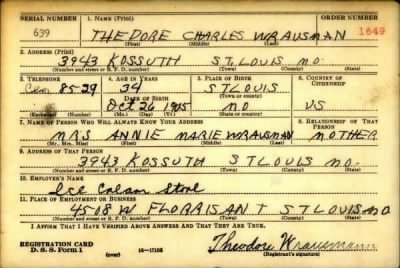 SERIAL NUMBER 1. NAME (Print) ORDER NUMBER
639 THEDORE CHARLES WRAUSMAN 1649
(First) (Middle) (Last)
2. ADDRESS (Print)
3943 KOSSUTH ST. LOUIS MO.
(Number and street or R. F. D. number) (Town) (County) (State)
3. TELEPHONE 4. AGE IN YEARS 5. PLACE OF BIRTH 6. COUNTRY OF CITIZENSHIP
85-29 34 ST LOUIS
DATE OF BIRTH (Town or county)
Oct. 26 1905 MO US
(Exchange) (Number) (Mo.) (Day) (Yr.) (State or country)
7. NAME OF PERSON WHO WILL ALWAYS KNOW YOUR ADDRESS 8. RELATIONSHIP OF THAT PERSON
MRS ANNIE MARIE WRAUSMAN MOTHER
(Mr., Mrs., Miss) (First) (Middle) (Last)
9. ADDRESS OF THAT PERSON
3943 KOSSUTH ST LOUIS MO.
(Number and street or R. F. D. number) (Town) (County) (State)
10. EMPLOYER'S NAME
11. PLACE OF EMPLOYMENT OR BUSINESS
4508 W FLORRISANT ST LOUIS MO
(Number and street or R. F. D. number) (Town) (County) (State)
I AFFIRM THAT I HAVE VERIFIED ABOVE ANSWERS AND THAT THEY ARE TRUE.
REGISTRATION CARD Theodore Wrausmann
D. S. S. Form 1 (over) 16-17105 (Registrant's signature)